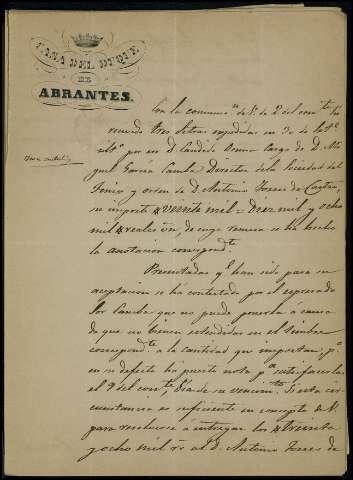 CASA DEL DUQUE
DE
ABRANTES.
Con la comunicn. de V. de 2 del corrte. he
recibido tres letras expedidas en 30 de
por en D. Candido cargo de D.
Garcia Camba Director de la Sociedad del
Fenix y orden de D. Antonio Torres de Castro,
su importe Veinte mil = Diez mil y ocho
mil reales vn, de cuya remesa se ha hecho
la anotacion correspondte.
Presentadas qe. han sido para su
aceptacion se ha contestado por el expresado
Sor Camba que no puede prestarla á causa
de que no vienen estendidas en el timbre
correspondte. a la cantidad que importan, pa.
su defecto ha puesto nota pa. satisfacerla
el 9 del corrte., dia de su vencimto. Si esta cir-
cunstancia es suficiente en concepto de V.
para resolverse a entregar los treinta
y ocho mil rs. al D. Antonio Torres de